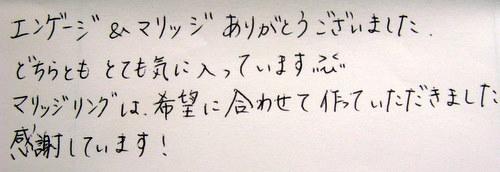 エンゲージ&マリッジ ありがとうございました.
どちらとも とても気に入っています
マリッジリングは、希望に合わせて作っていただきました
感謝しています!